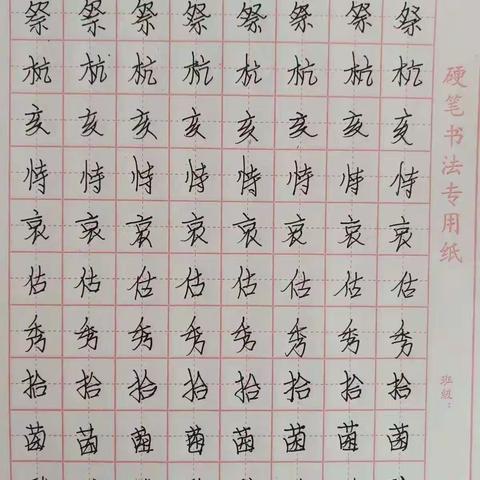 祭 祭 祭 祭 祭 祭 祭 祭
杭 杭 杭 杭 杭 杭 杭 杭
亥 亥 亥 亥 亥 亥 亥 亥
恃 恃 恃 恃 恃 恃 恃 恃
哀 哀 哀 哀 哀 哀 哀 哀
估 估 估 估 估 估 估 估
秀 秀 秀 秀 秀 秀 秀 秀
拾 拾 拾 拾 拾 拾 拾 拾
菌 菌 菌 菌 菌 菌 菌 菌
硬笔书法专用纸
班级：